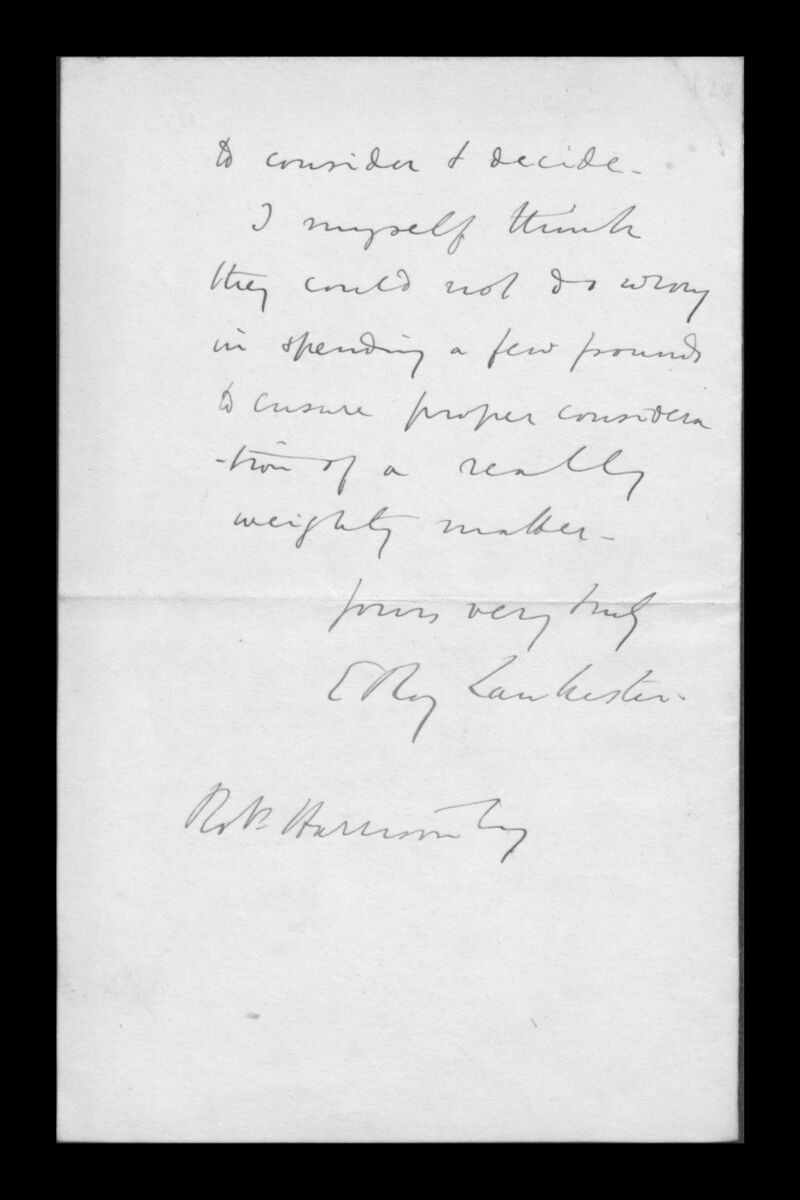 to consider & decide -
I myself think
they could not do wrong
in spending a few pounds
to ensure proper considera
-tion of a really
weighty matter -
Yours very truly
E Ray Lankester.
Robt. Harrison Esq